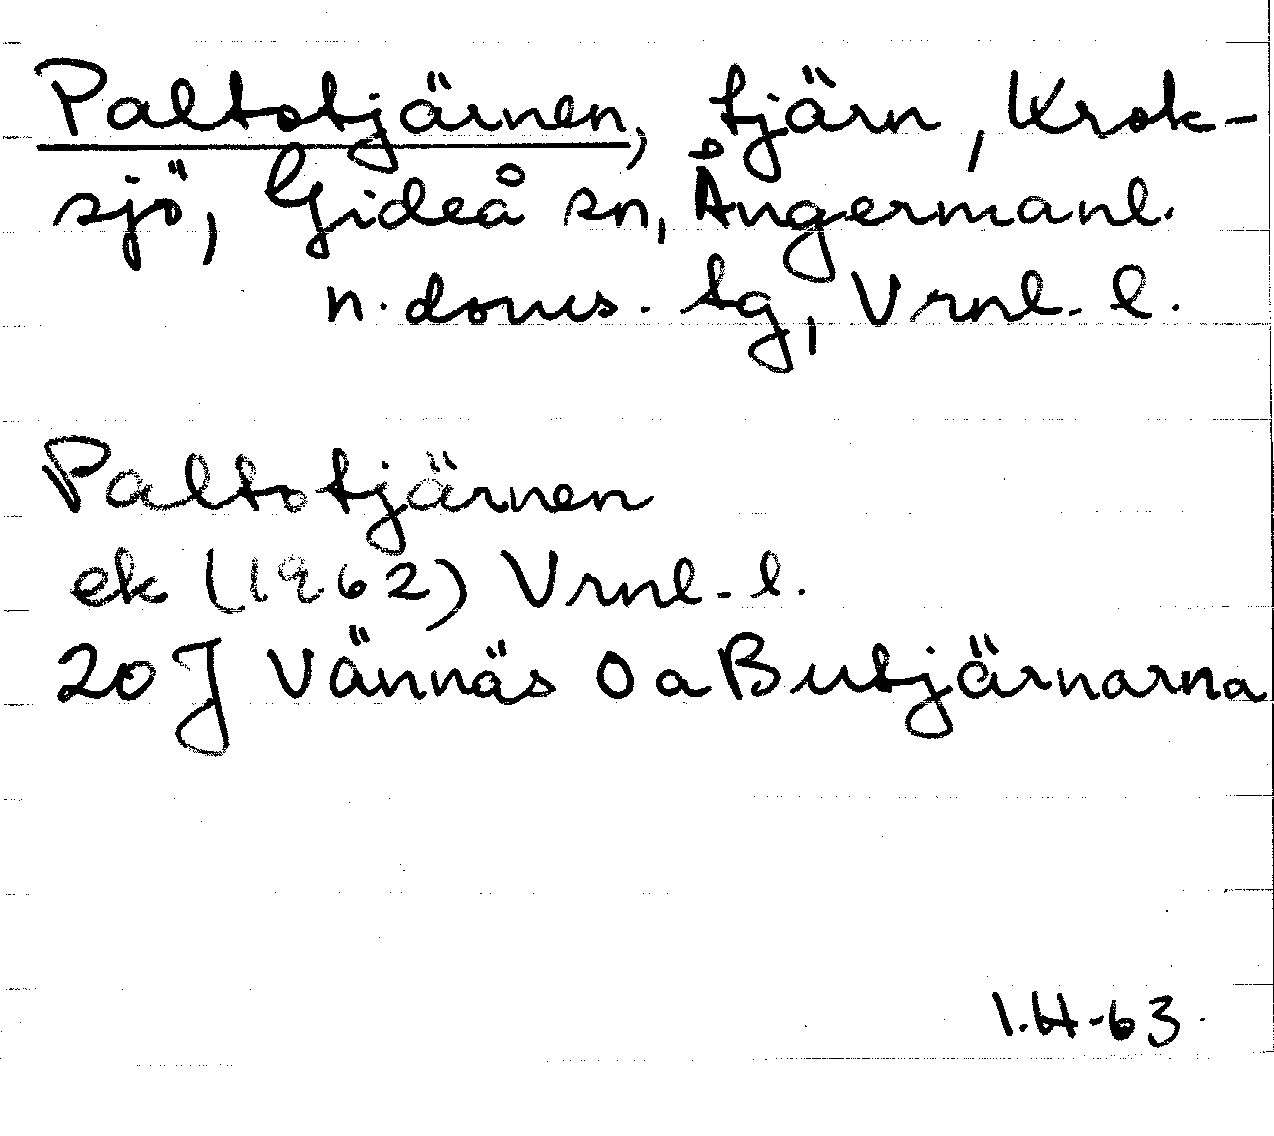 Paltotjärnen, tjärn, Krok-
sjö, Gideå sn, Ångermanl.
n. doms. tg, Vrnl. l.
Paltotjärnen
ek (1962) Vrnl. l.
20 J Vännäs O a Butjärnarna
I.H-63